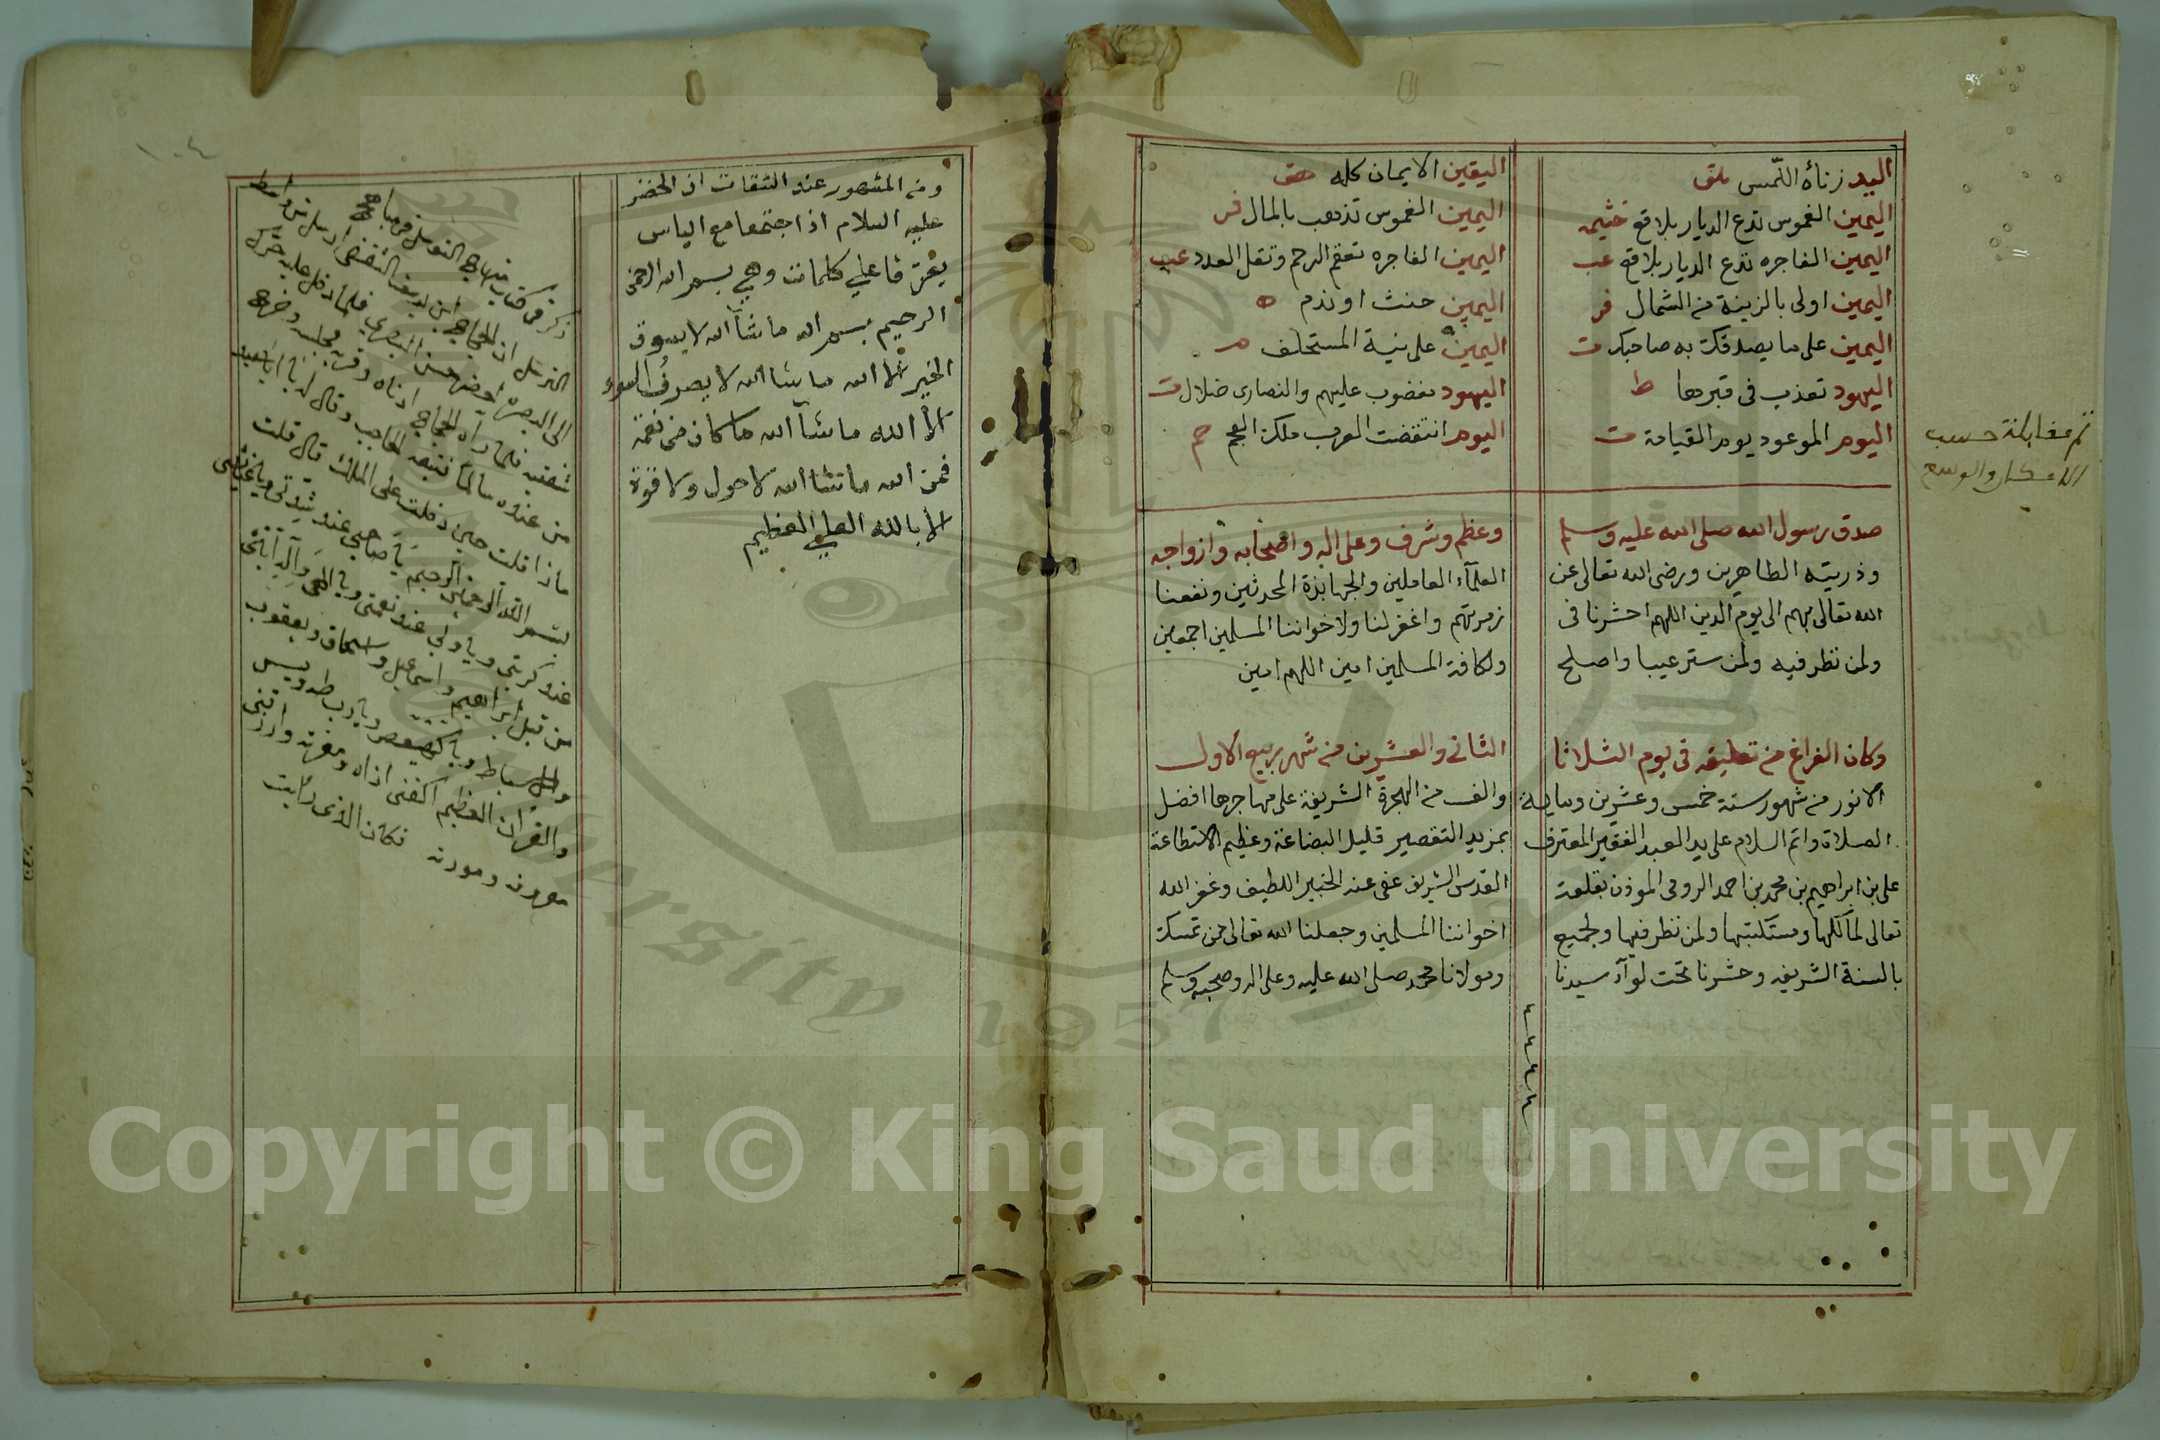 اليد زناؤه اللمس
اليقين الايمان كله
اليمين الغموس تدع الديار بلاقع
اليمين الغموس تذهب بالمال فر
اليمين الفاجره تدع الديار بلاقع عب
اليمين الفاجره تعقم الرحم وتقل العدد عب
اليمين اولى بالزينة من الشمال فر
اليمين حنث او ندم ه
اليمين على ما يصدقك به صاحبك ت
اليمين على نية المستحلف م
اليهود تعذب فى قبرها ط
اليهود مغضوب عليهم والنصارى ضلال ت
اليوم الموعود يوم القيامة ت
اليوم انتقضت العرب ملك العجم
تم مقابلة حسب
الامكان والوسع
صدق رسول الله صلى الله عليه وسلم
وعظم وشرف وعلى اله واصحابه وازواجه
وذريته الطاهرين ورضى الله تعالى عن
العلمآء العاملين والجهابذة المحدثين ونفعنا
الله تعالى بهم الى يوم الدين اللهم احشرنا فى
زمرتهم واغفر لنا ولاخواننا المسلمين اجمعين
ولمن نظر فيه ولمن ستر عيبا واصلح
ولكافة المسلمين امين اللهم امين
وكان الفراغ من تعليقه فى يوم الثلاثا
الثانى والعشرين من شهر ربيع الاول
الانور من شهور سنة خمس وعشرين ومايـة
والف من الهجرة الشريفة على مهاجرها افضل
الصلاة واتم السلام على يد العبد الفقير المعترف
بمزيد التقصير قليل البضاعة وعظيم الاستطاعة
على بن ابراهيم بن محمد بن احمد الرومى الموذن بقلعة
القدس الشريف عفى عنه الخبير اللطيف وغفر الله
تعالى لمالكها ومستكتبها ولمن نظر فيها ولجميع
اخواننا المسلمين وجعلنا الله تعالى ممن تمسك
بالسنة الشريفه وحشرنا تحت لوآء سيدنا
ومولانا محمد صلى الله عليه وعلى اله وصحبه وسلم
١٠٤
ومن المشهور عند الثقات ان الخضر
عليه السلام اذا اجتمعا مع الياس
كلمات وهى بسم الله الرحمن
الرحيم بسم الله ما شآء الله لا يسوق
الخير الا الله ما شا الله لا يصرف السوء
الا الله ما شآ الله ما كان من نعمة
فمن الله ما شا الله لا حول ولا قوة
الا بالله العلي العظيم
ذكر فى كتاب منهاج التوسل فى مباهج
الترسل ان الحجاج ابن يوسف الثقفى ارسل من واسط
الى البصرة حسن البصري فلما دخل عليه حرك
شفتيه فلما رآه الحجاج ادناه وقرب مجلسه وخرج
من عنده سالما فتبعه الحاجب وقال له يا ابا سعيد
ماذا قلت حين دخلت على الملك قال قلت
بسم الله الرحمن الرحيم يا صاحبى عند شدتى ويا غياثى
عند كربتى ويا وليى عند نعمتى ويا الهى واله ابائى
من قبل ابراهيم واسماعيل واسحاق ويعقوب
والاسباط ويا كهيعص ويا رب طه ويس
والقران العظيم اكفنى اذاه ومعرته وارزقنى
معروفه ومودته فكان الذى رايت
Copyright © King Saud University
1957